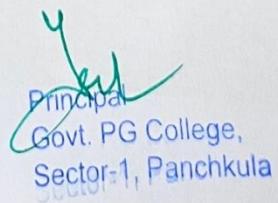 Principal
Govt. PG College,
Sector-1, Panchkula